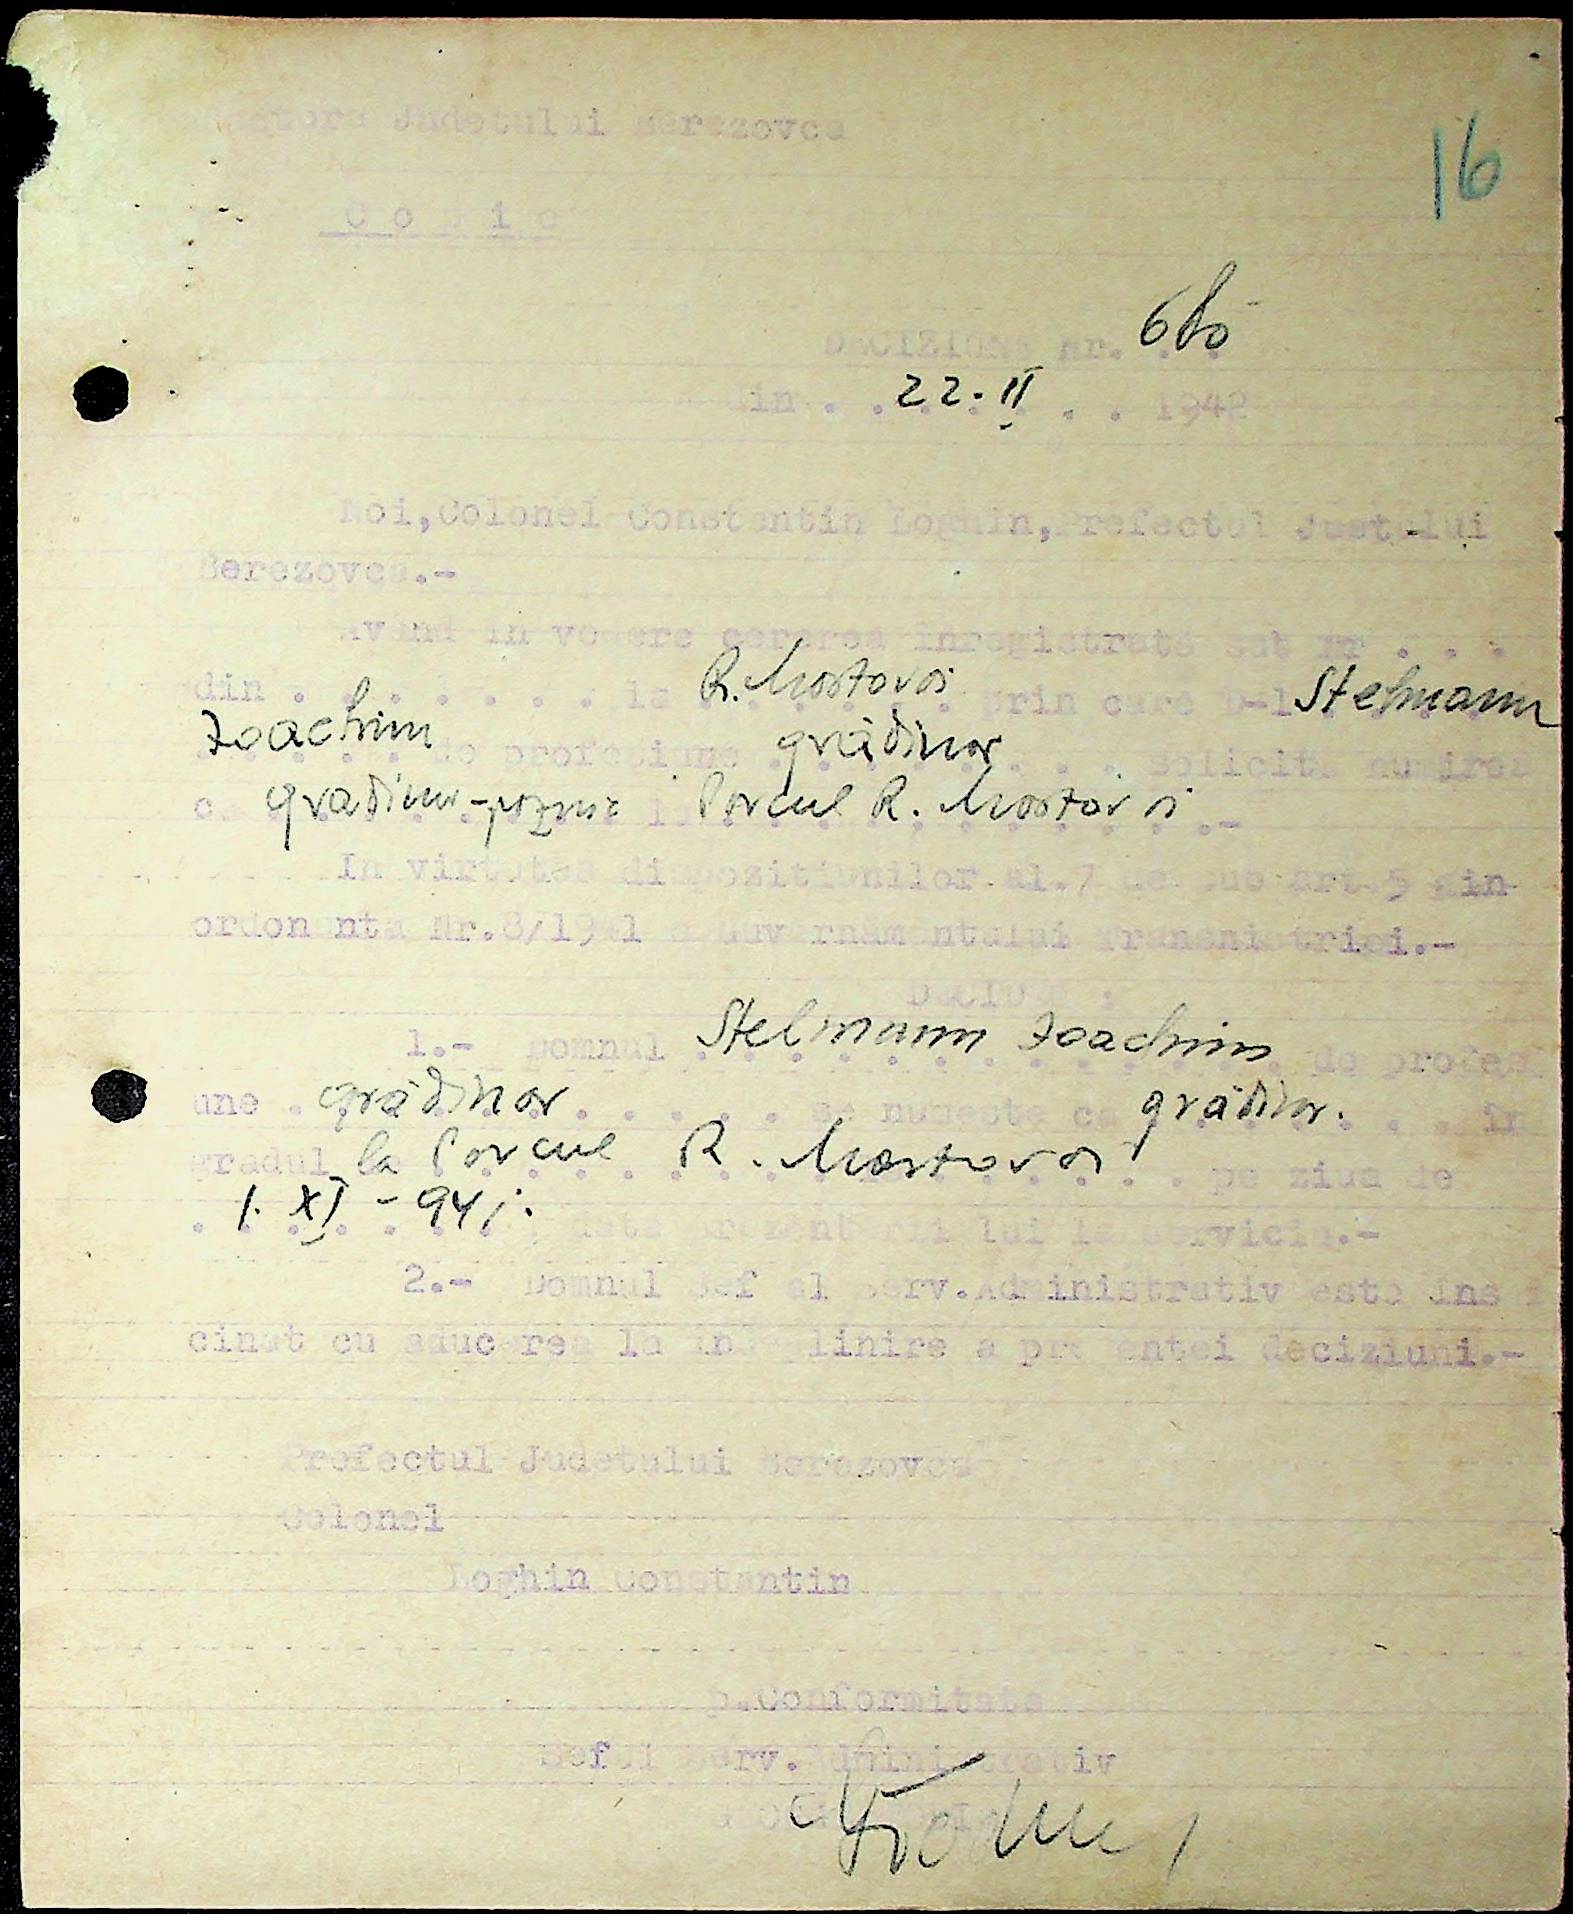 Judetului Berezovca
16
C o p i e
DECIZIUNE Nr.
din . . 22.II . . 1942
Noi,Colonel Constantin Loghin,Prefectul Judetului
Berezovca.-
Avand in vedere cererea inregistrata sub Nr . . .
din . . . . . . . la R. Mostovoi prin care D-l Stelmann
Joachim de profesiune grădinar solicita numirea
ca gradinar- Parcul R. Mostovoi .-
In virtutea dispozitiunilor al.7 art.5 din
ordonanta Nr.8/1941 a Guvernamantului Transnistriei.-
DECIDEM :
1.- Domnul Stelmann Joachim de profesi
une grădinar se numeste ca grădinar. in
gradul la Parcul R. Mostovoi pe ziua de
1. XI - 941. data prezentarii lui la serviciu.-
2.- Domnul Sef al Serv.Administrativ este insar
cinat cu aducerea la indeplinire a prezentei deciziuni.-
Prefectul Judetului Berezovca
Colonel
Loghin Constantin
p.Conformitate
Seful Serv.Administrativ